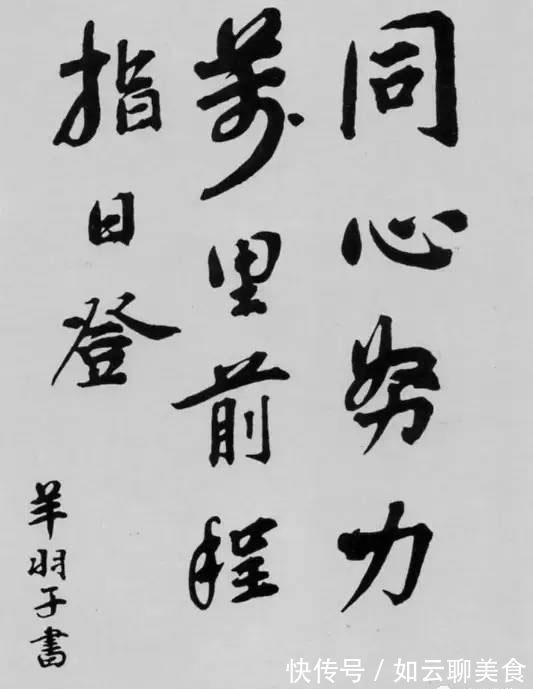 同心努力
萬里前程
指日登
羊羽子書
快传号 / 如云聊美食